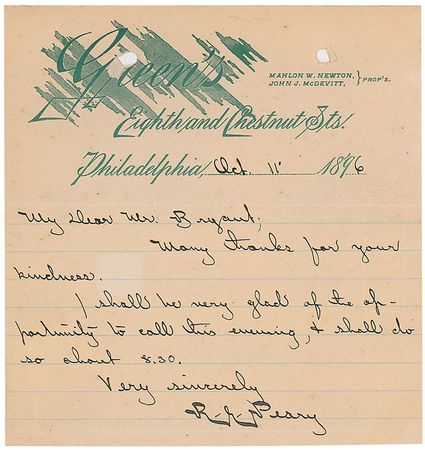 Green's
MAHLON W. NEWTON,
JOHN J. McDEVITT, } PROP'S.
Eighth and Chestnut Sts.
Philadelphia, Oct. 11" 1896
My Dear Mr. Bryant;
Many thanks for your
kindness.
I shall be very glad of the op-
portunity to call this evening, & shall do
so about 8.30.
Very sincerely
R. E. Peary